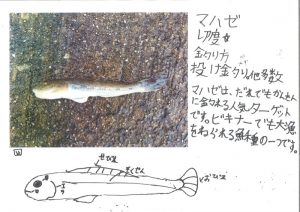 マハゼ
レア度☆
釣り方
投げ釣り他多数
マハゼは、だれでもかんたん
に釣れる人気ターゲット
です。ビギナーでも大漁
をねらえる魚種の一つです。
せびれ
おびれ
エラ